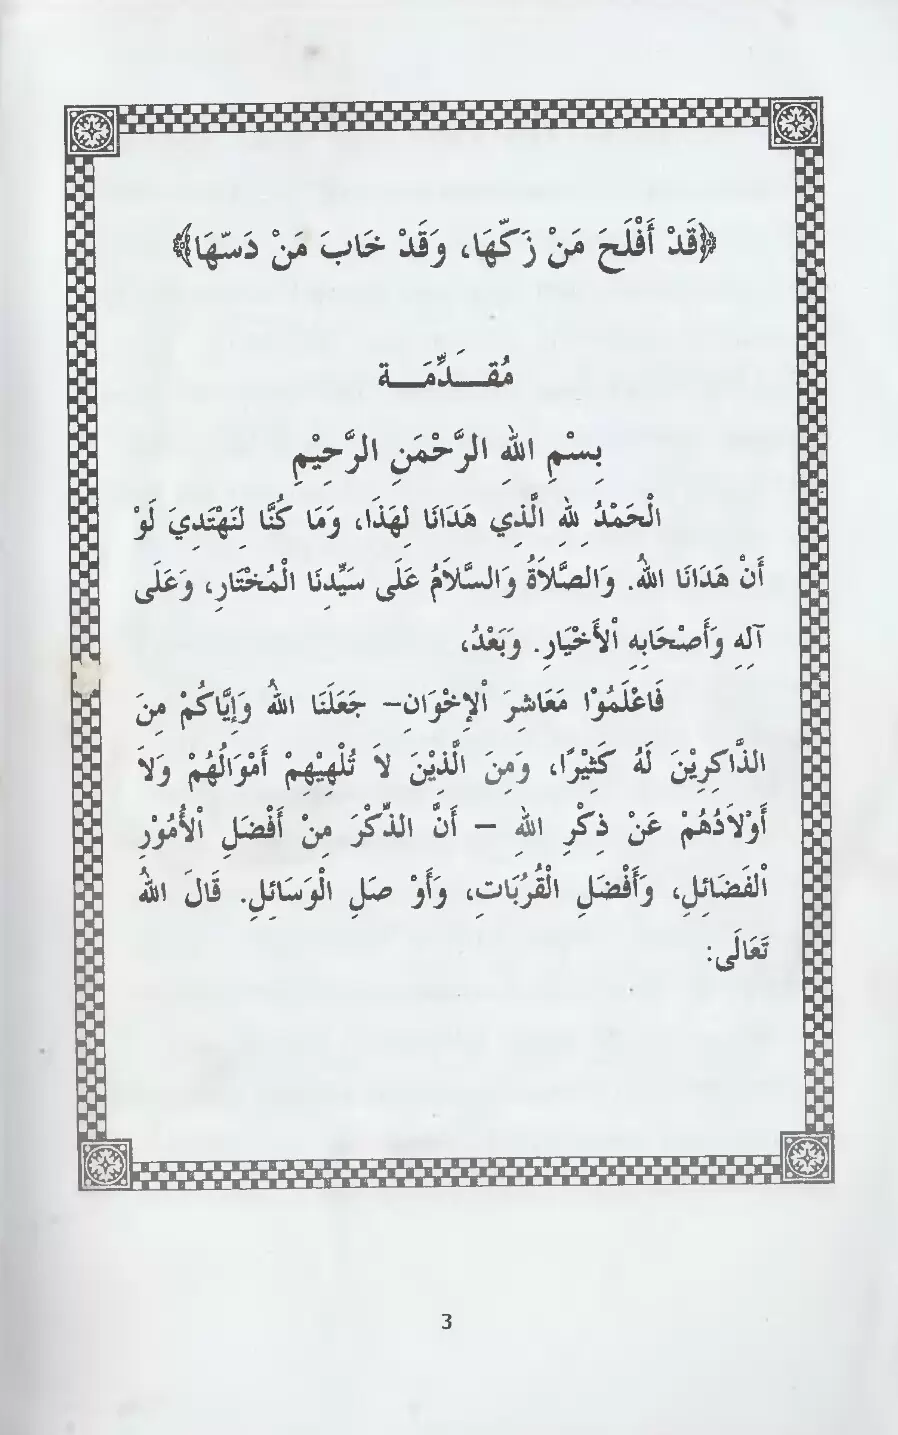 ﴿قَدْ أَفْلَحَ مَنْ زَكّهَا، وَقَدْ خَابَ مَنْ دَسّهَا﴾
مُقَدِّمَة
بِسْمِ اللهِ الرَّحْمَنِ الرَّحِيْمِ
الْحَمْدُ لِلهِ الَّذِي هَدَانَا لِهَذَا، وَمَا كُنَّا لِنَهْتَدِيَ لَوْ
أَنْ هَدَانَا اللهُ. وَالصَّلاَةُ وَالسَّلاَمُ عَلَى سَيِّدِنَا الْمُخْتَارِ، وَعَلَى
آلِهِ وَأَصْحَابِهِ اْلأَخْيَارِ. وَبَعْدُ،
فَاعْلَمُوْا مَعَاشِرَ اْلإِخْوَانِ– جَعَلَنَا اللهُ وَإِيَّاكُمْ مِنَ
الذَّاكِرِيْنَ لَهُ كَثِيْرًا، وَمِنَ الَّذِيْنَ لاَ تُلْهِيْهِمْ أَمْوَالُهُمْ وَلاَ
أَوْلاَدُهُمْ عَنْ ذِكْرِ اللهِ – أَنَّ الذِّكْرَ مِنْ أَفْضَلِ اْلأُمُوْرِ
الْفَضَائِلِ، وَأَفْضَلِ الْقُرُبَاتِ، وَأَوْ صَلِ الْوَسَائِلِ. قَالَ اللهُ
تَعَالَى:
3